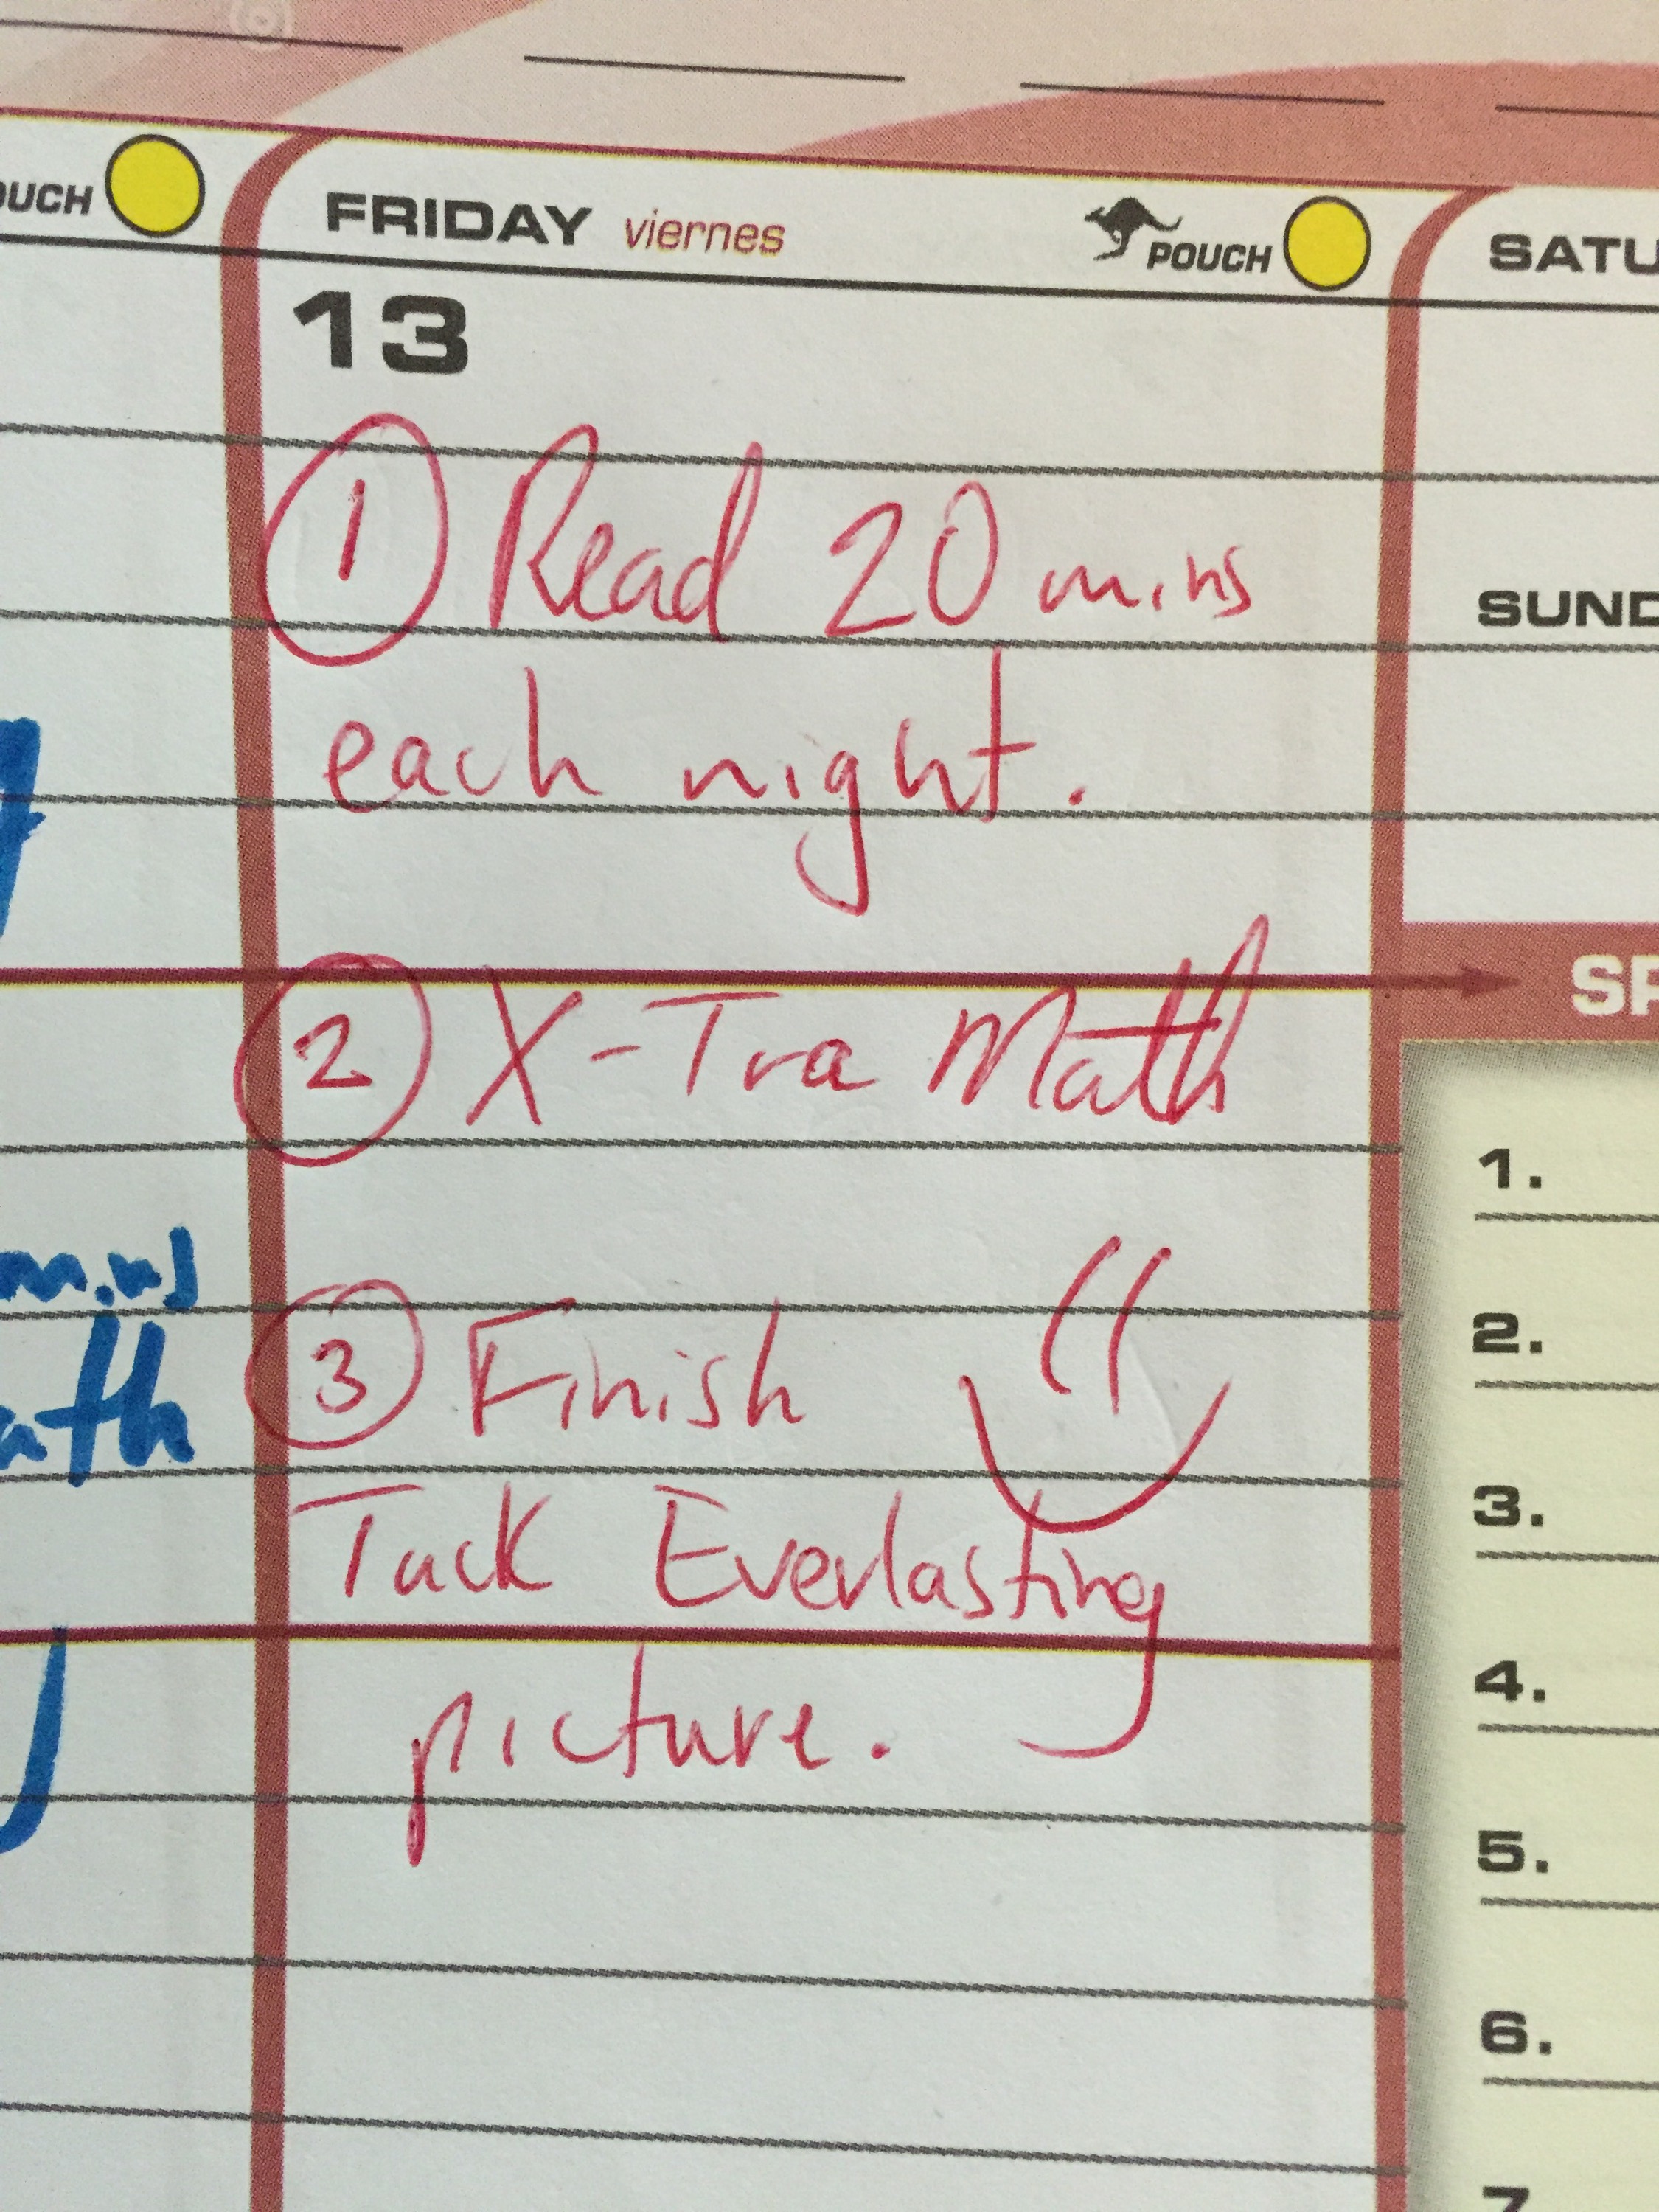 FRIDAY viernes
POUCH
13
① Read 20 mins
each night.
② X-Tra Math
③ Finish
Tuck Everlasting
picture.
OUCH
mins
ath
SATU
SUND
SP
1.
2.
3.
4.
5.
6.
7.